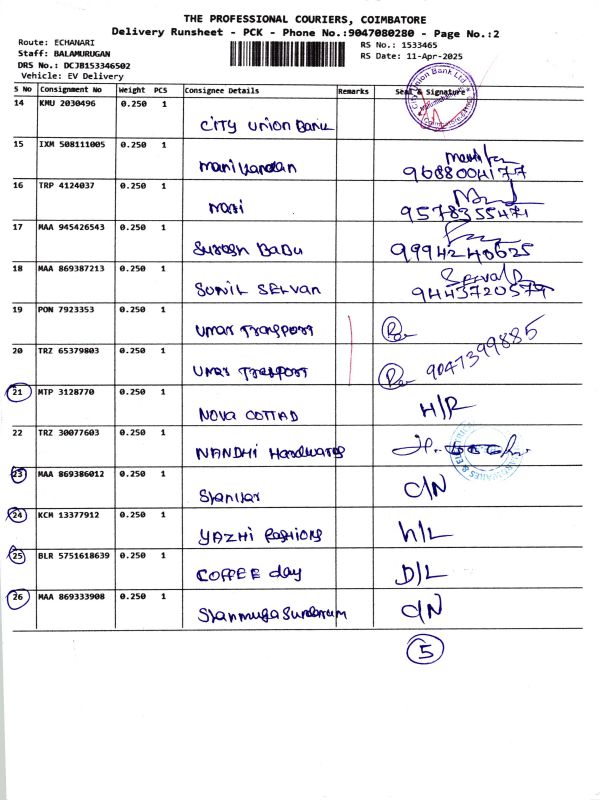 THE PROFESSIONAL COURIERS, COIMBATORE
Delivery Runsheet - PCK - Phone No.:9047080280 - Page No.:2
Route: ECHANARI
Staff: BALAMURUGAN
DRS No.: DCJB153346502
Vehicle: EV Delivery
RS No.: 1533465
RS Date: 11-Apr-2025
City Union Bank Ltd.
S No Consignment No Weight PCS Consignee Details Remarks Seal & Signature
14 KMU 2030496 0.250 1 City Union Bank
15 IXM 508111005 0.250 1 Manikandan 9688004177
16 TRP 4124037 0.250 1 Mari 9578355471
17 MAA 945426543 0.250 1 Suresh Babu 9994240625
18 MAA 869387213 0.250 1 SUNIL SELVAN 9443720579
19 PON 7923353 0.250 1 Umar Transport
20 TRZ 65379803 0.250 1 Umar Transport 9047399885
21 MTP 3128770 0.250 1 NOVA COTTAD H/R
22 TRZ 30077603 0.250 1 NANDHI Hardwares
23 MAA 869386012 0.250 1 C/N
24 KCM 13377912 0.250 1 YAZHI FASHIONS h/L
25 BLR 5751618639 0.250 1 COFFEE day D/L
26 MAA 869333908 0.250 1 Shanmuga Sundaram C/N
5